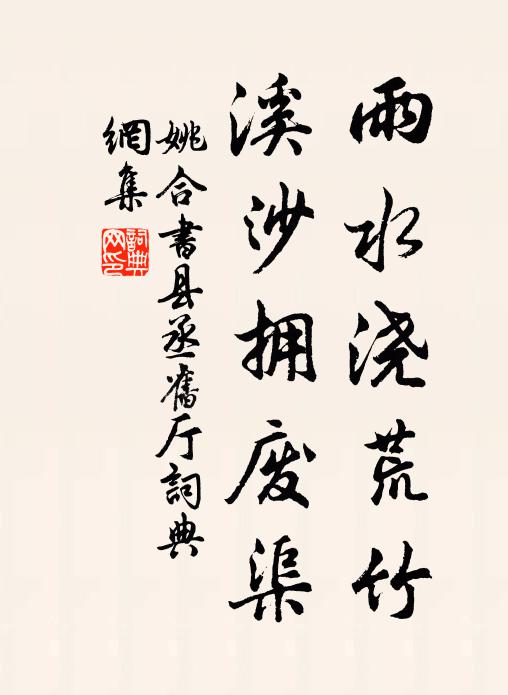 雨水浇荒竹
溪沙拥废渠
姚合書县丞舊厅詞典
網集
詞典網印